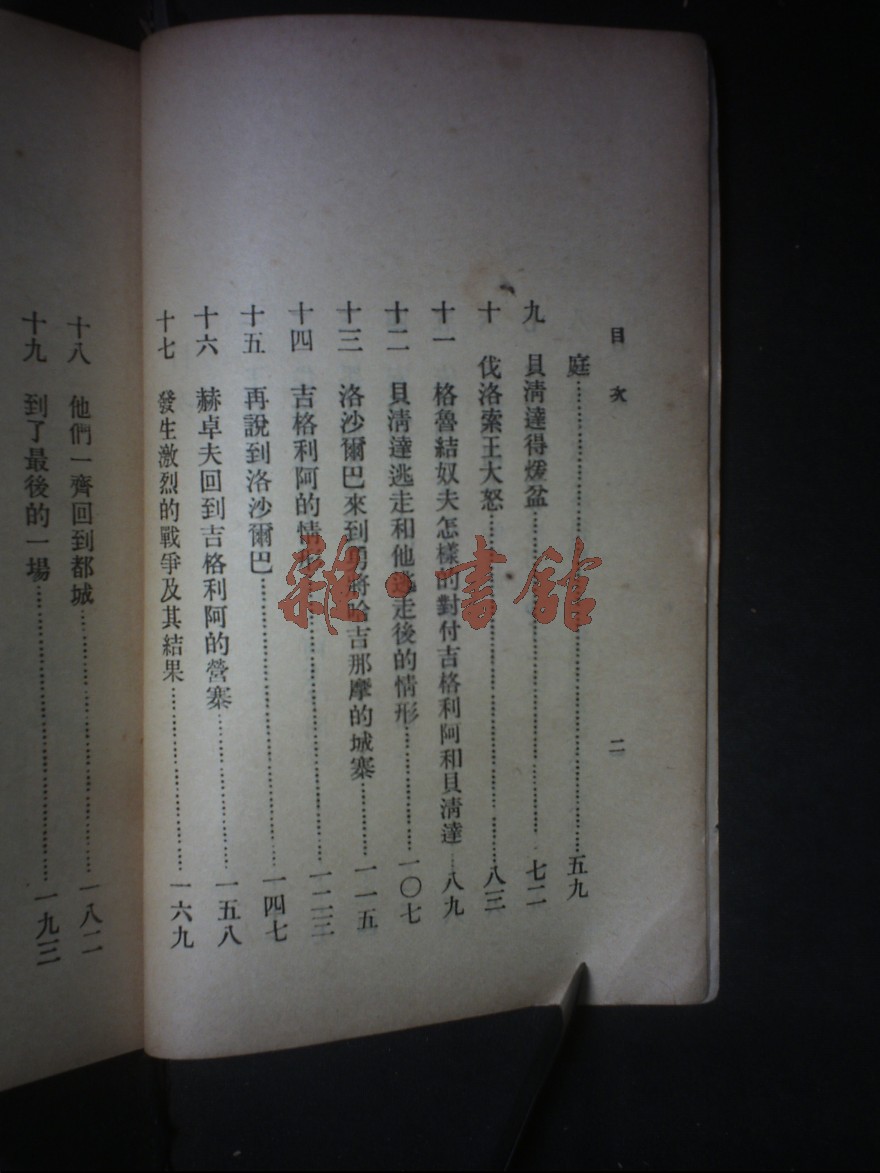 目次
二
庭……五九
九 貝淸達得煖盆……七二
十 伐洛索王大怒……八三
十一 格魯結奴夫怎樣的對付吉格利阿和貝淸達…八九
十二 貝淸達逃走和他逃走後的情形……一〇七
十三 洛沙爾巴來到馬將哈吉那摩的城寨……一一五
十四 吉格利阿的情形……一二三
十五 再說到洛沙爾巴……一四七
十六 赫卓夫回到吉格利阿的營寨……一五八
十七 發生激烈的戰爭及其結果……一六九
十八 他們一齊回到都城……一八二
十九 到了最後的一場……一九三
雜·書館